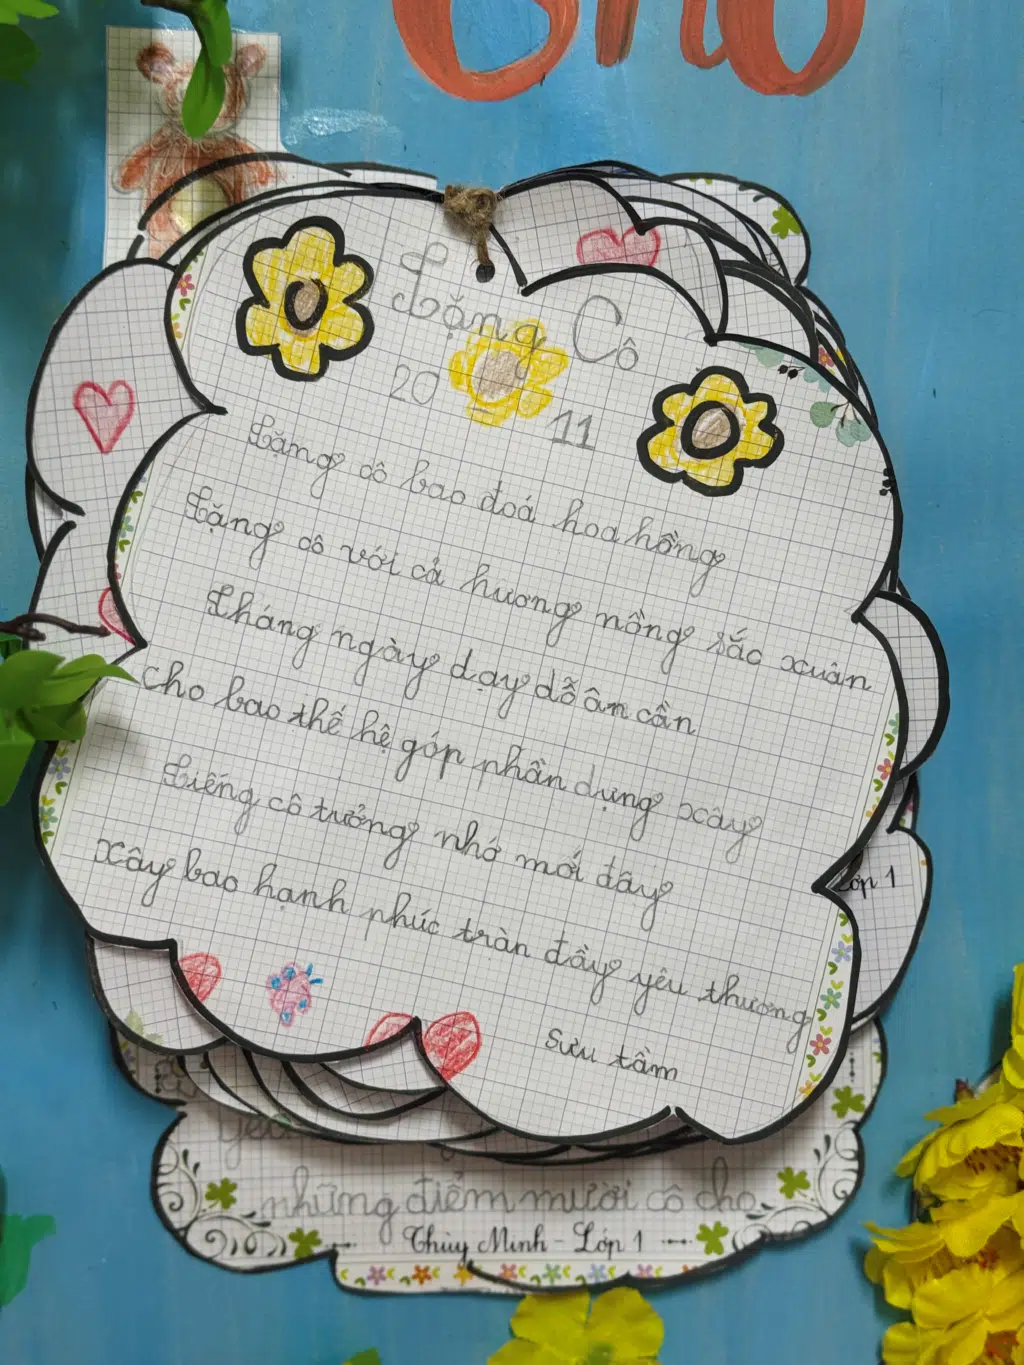 Tặng Cô
20 11
Tặng cô bao đoá hoa hồng
Tặng cô với cả hương nồng sắc xuân
Tháng ngày dạy dỗ ân cần
cho bao thế hệ góp phần dựng xây
Tiếng cô tưởng nhớ mới đây
Xây bao hạnh phúc tràn đầy yêu thương
Sưu tầm
Lớp 1
những điểm mười cô cho
Thùy Minh - Lớp 1